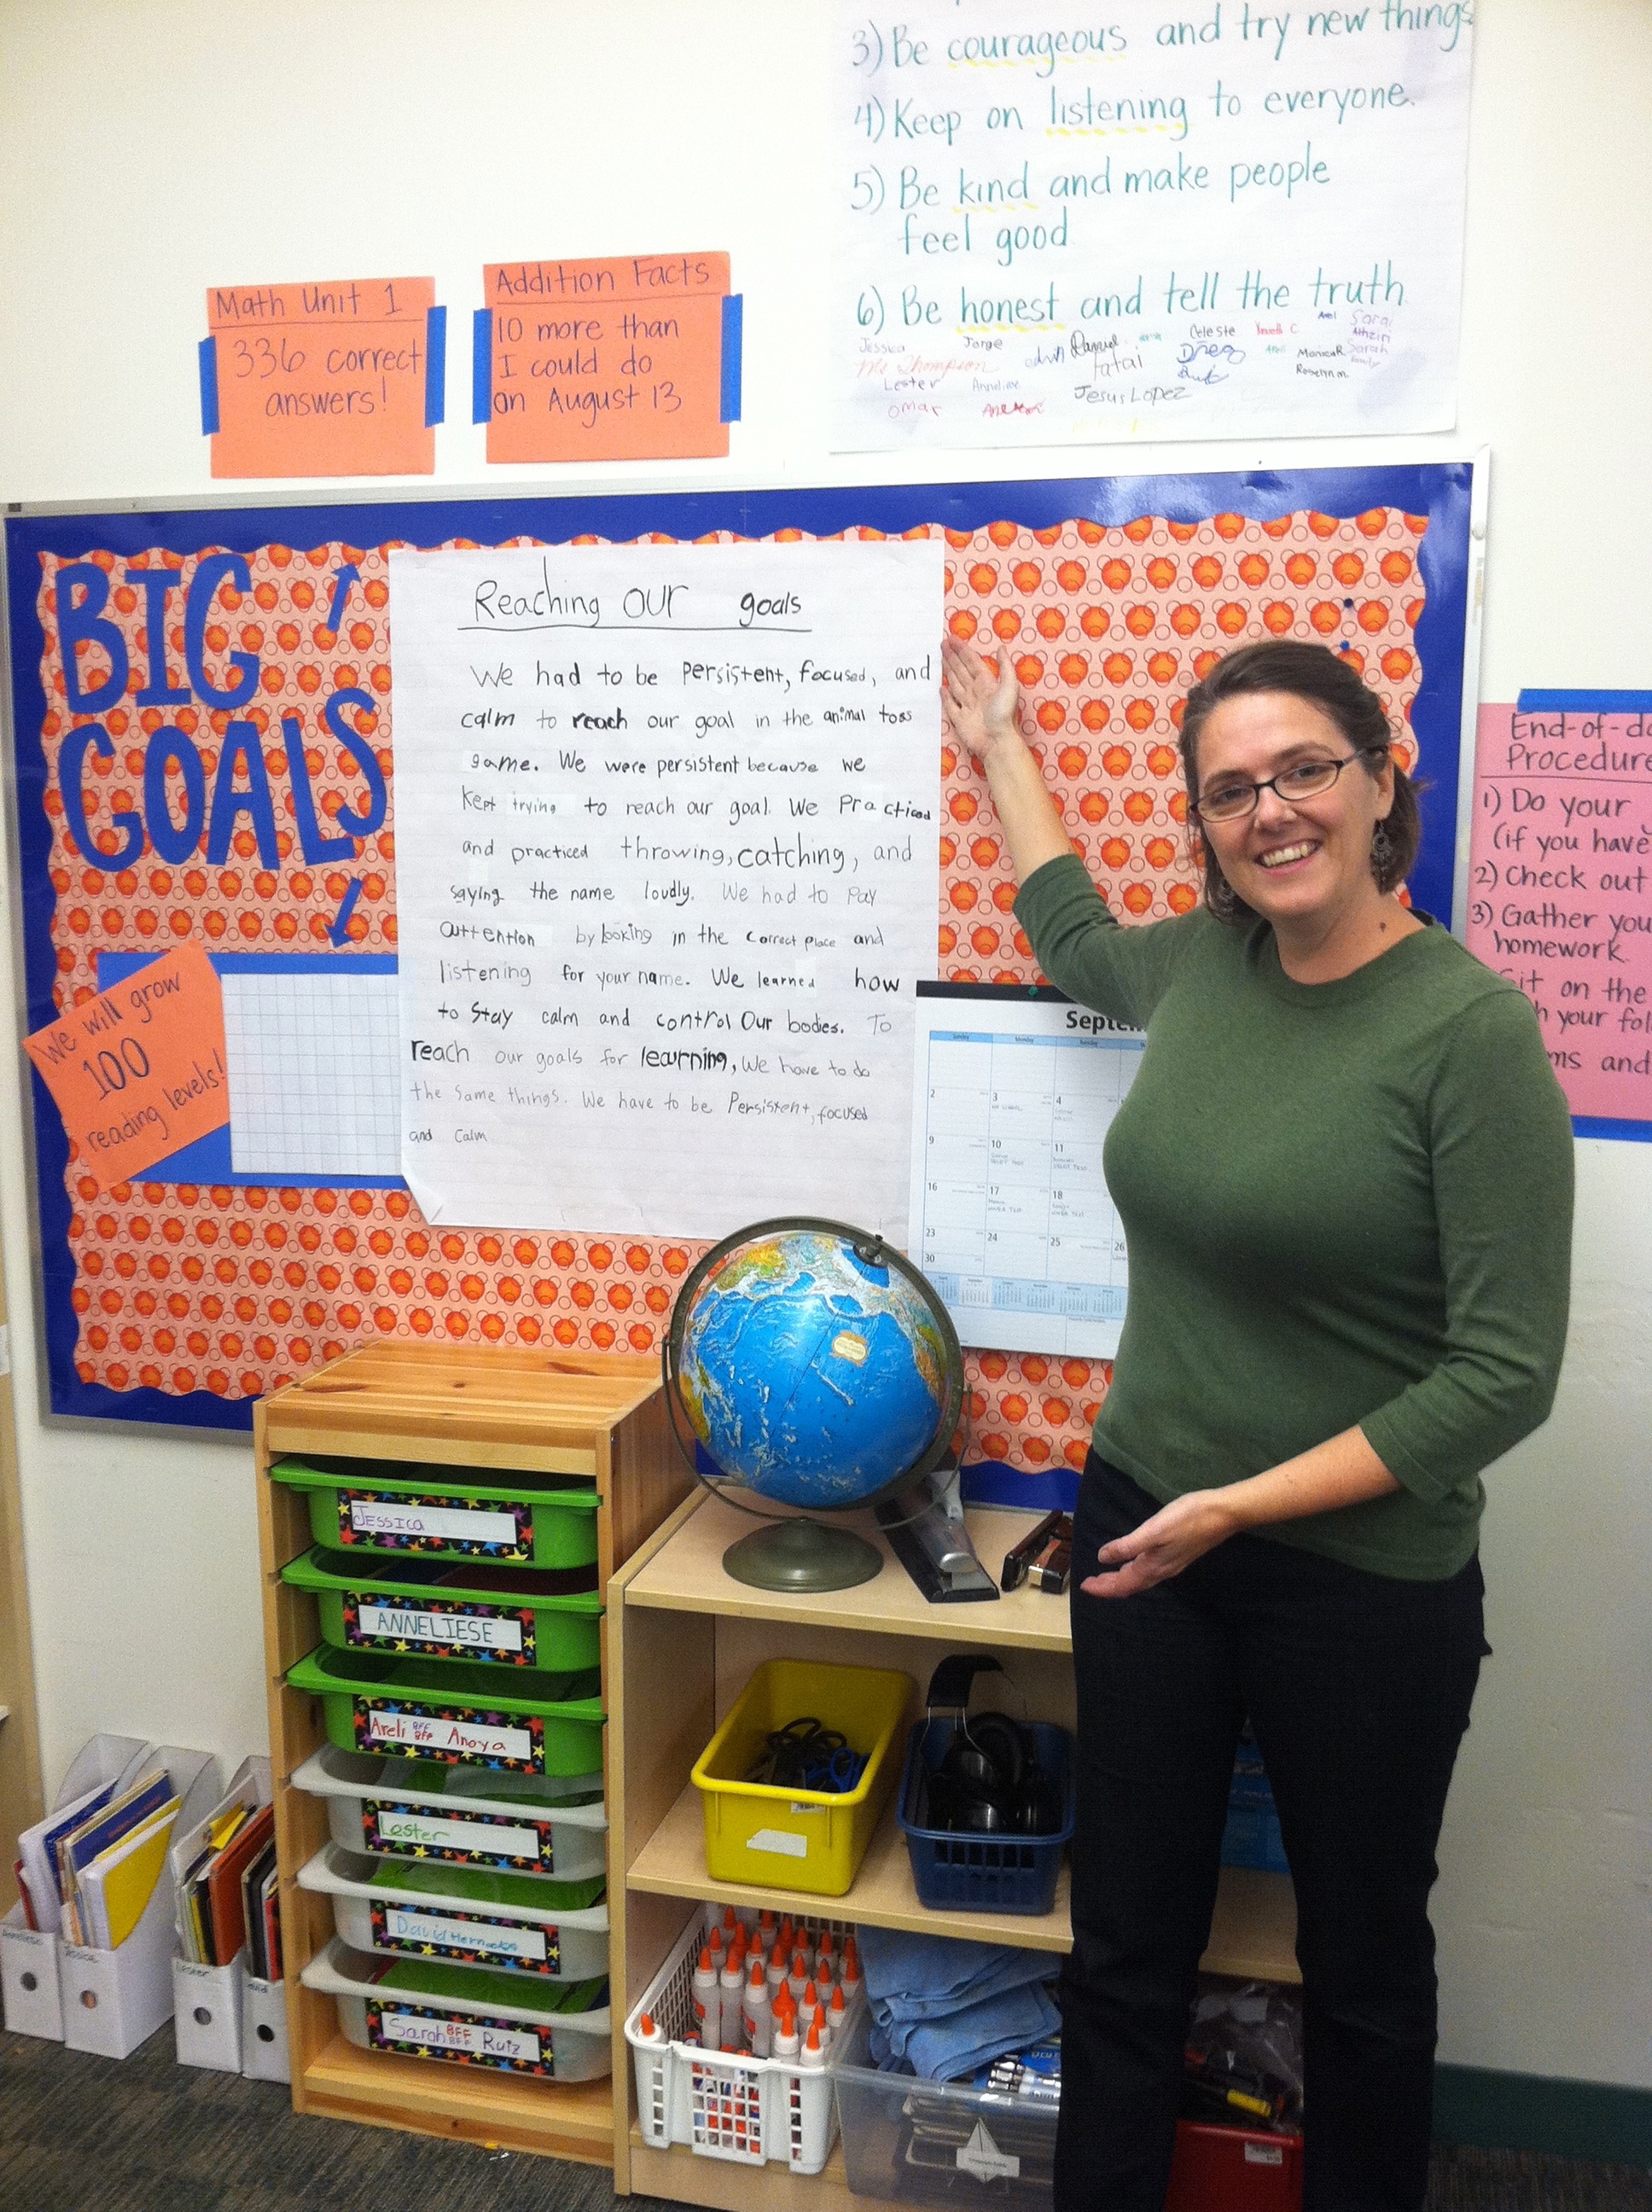 3) Be courageous and try new things
4) Keep on listening to everyone.
5) Be kind and make people
feel good
6) Be honest and tell the truth
Jessica Jorge Celeste Sarai
Ms Thompson
Lester Anneliese MonicaR Sarah
Omar Jesus Lopez
Math Unit 1
336 correct
answers!
Addition Facts
10 more than
I could do
on August 13
BIG
GOALS
We will grow
100
reading levels!
Reaching our goals
We had to be persistent, focused, and
calm to reach our goal in the animal toss
game. We were persistent because we
kept trying to reach our goal. We practiced
and practiced throwing, catching, and
saying the name loudly. We had to pay
attention by looking in the correct place and
listening for your name. We learned how
to stay calm and control our bodies. To
reach our goals for learning, we have to do
the same things. We have to be Persistent, focused
and calm
Septem
Sunday Monday Tuesday
2 3 4
9 10 11
16 17 18
23 24 25 26
30
End-of-da
Procedure
1) Do your
(if you have
2) Check out
3) Gather you
homework
Sit on the
h your fol
ms and
JESSICA
ANNELIESE
Areli BFF BFF Anoya
Lester
David Hernandez
Sarah BFF BFF Ruiz
Anneliese
Jessica
Lester